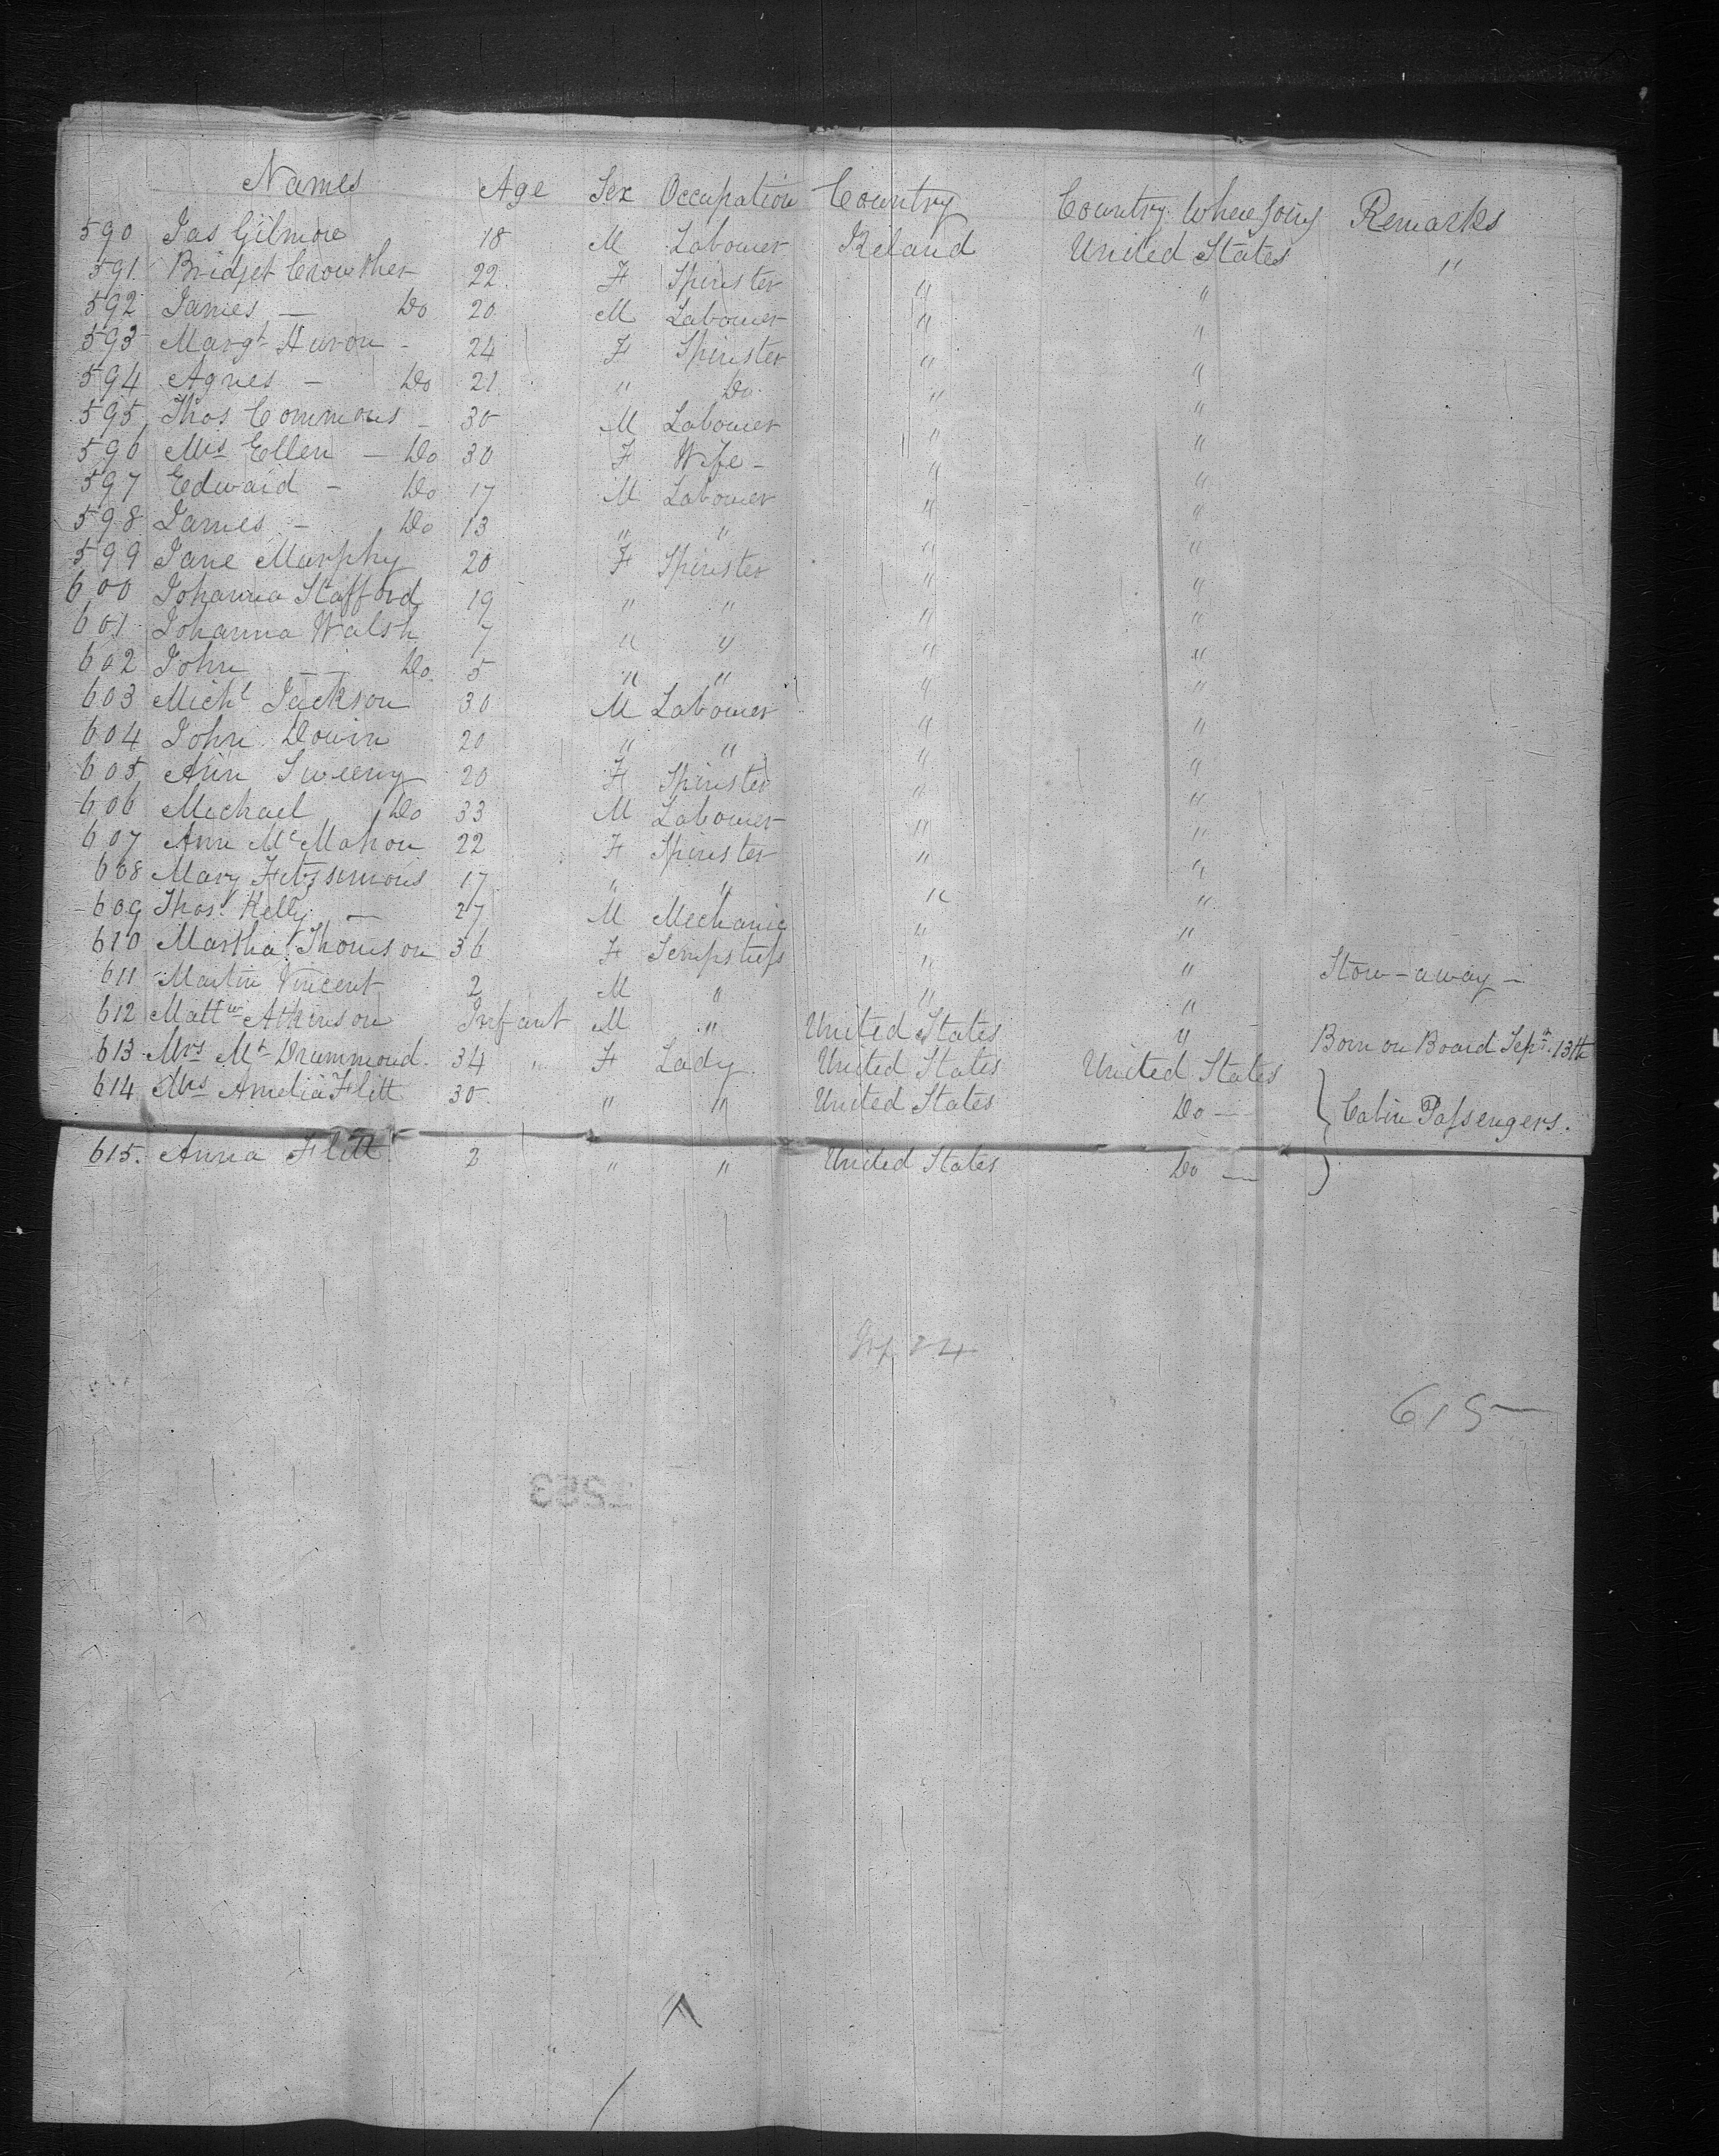 Names Age Sex Occupation Country Country Where Going Remarks
590 Jas Gilmore 18 M Labourer Ireland United States "
591 Bridget Crowther 22 F Spinster " "
592 James — Do 20 M Labourer " "
593 Margt Huron - 24 F Spinster " "
594 Agnes — Do 21 " Do " "
595 Thos Commons - 30 M Labourer " "
596 Mrs Ellen — Do 30 F Wife - " "
597 Edward - Do 17 M Labourer " "
598 James - Do 13 " " " "
599 Jane Murphy 20 F Spinster " "
600 Johanna Stafford 19 " " " "
601 Johanna Walsh 7 " " " "
602 John — Do 5 " " " "
603 Michl Jackson 30 M Labourer " "
604 John Dowin 20 " " " "
605 Ann Sweeny 20 F Spinster " "
606 Michael Do 33 M Labourer " "
607 Ann McMahon 22 F Spinster " "
608 Mary Fitzsimons 17 " " " "
609 Thos Kelly — 27 M Mechanic " "
610 Martha Thomson 36 F Sempstress " "
611 Martin Vincent 2 M " " " Stow-away -
612 Mattw Atkinson Infant M " United States " Born on Board Sept. 13th
613 Mrs Mt Drummond. 34 " F Lady. United States United States
614 Mrs Amelia Flitt 30 " " United States Do — Cabin Passengers.
615. Anna Flitt. 2 " " United States Do —
615
1263